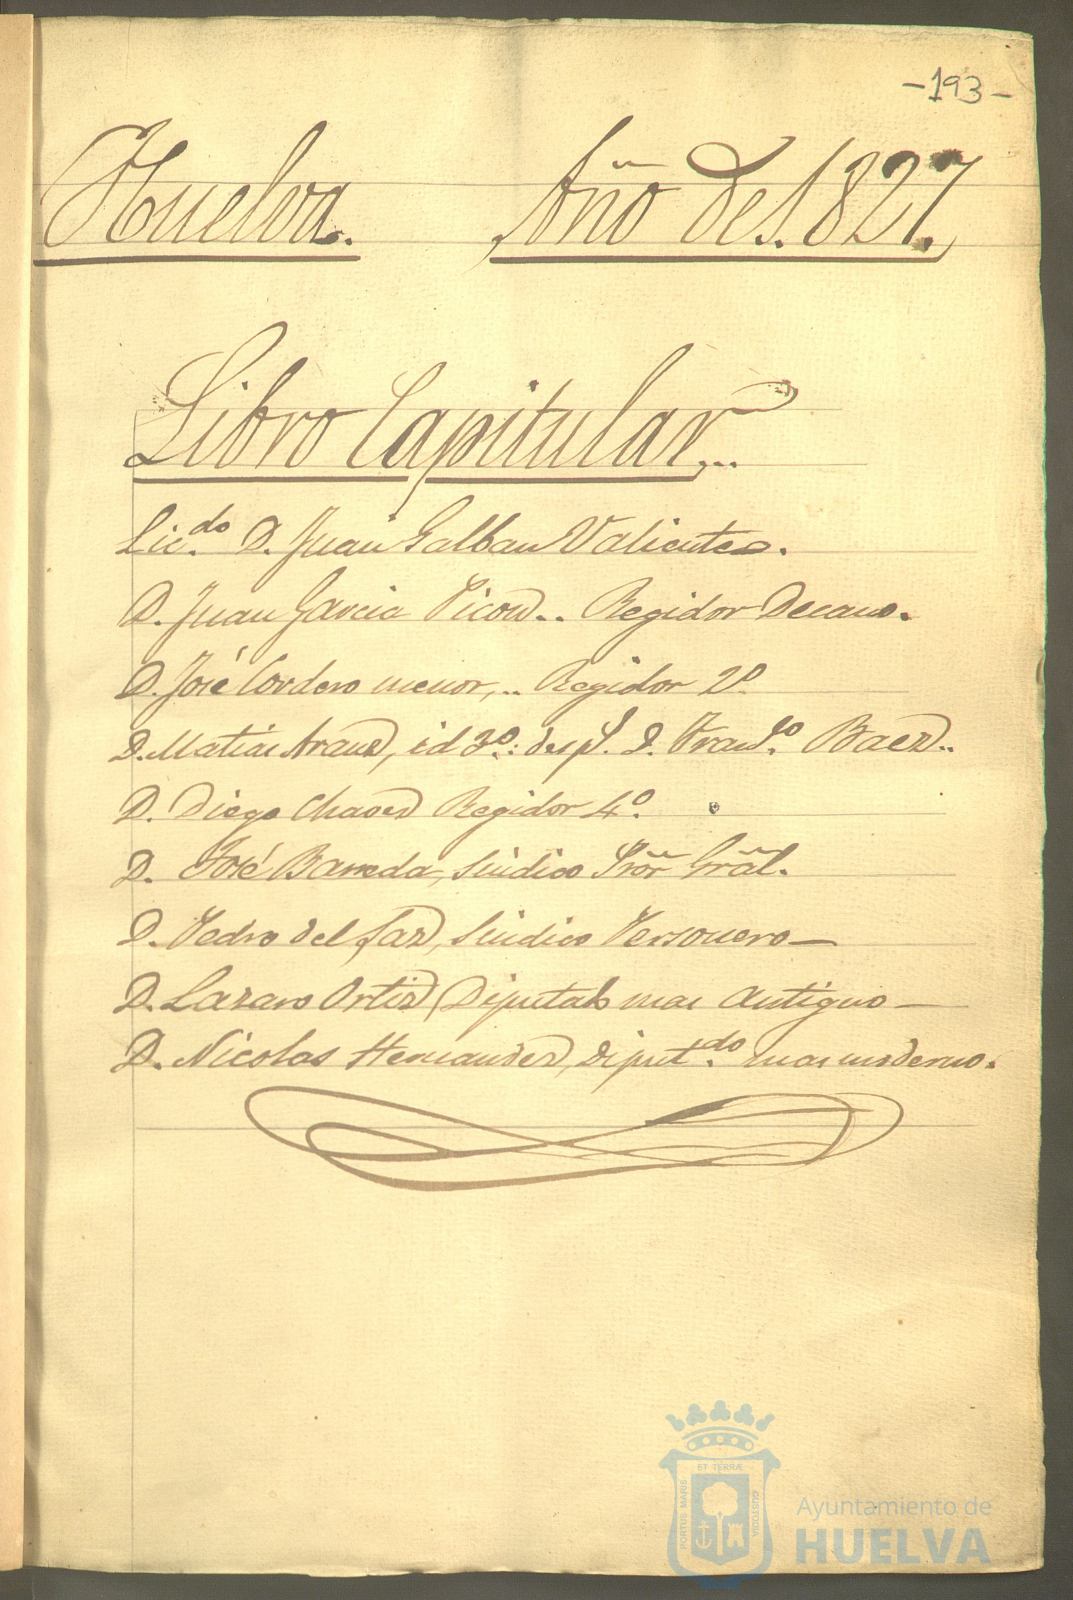 -193-
Huelva. Año de 1827.
Libro Capitular...
Lic.do D. Juan Galban Valiente.
D. Juan Garcia Picon.. Regidor Decano.
D. José Cordero menor,.. Regidor 2º
D. Matias Arauz, id 3º: desp.s D. Fran.co Baez..
D. Diego Chaves Regidor 4º.
D. José Barreda, Sindico Prōr Grāl.
D. Pedro del Paz, Sindico Personero—
D. Lazaro Ortiz, Diputado mas antiguo—
D. Nicolas Hernandez, Diput.do mas moderno.
PORTUS MARIS
ET TERRÆ
CUSTODIA
Ayuntamiento de
HUELVA